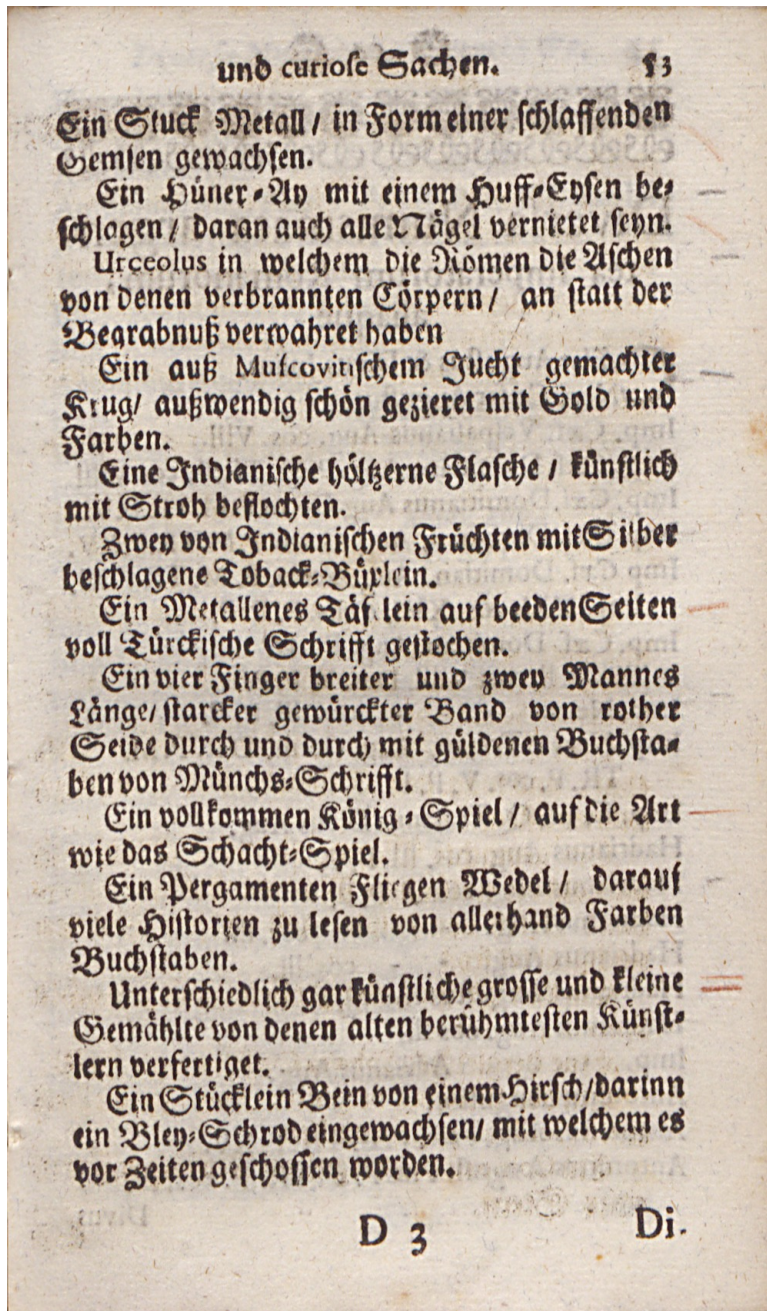 und curiose Sachen. 53
Ein Stuck Metall / in Form einer schlaffenden
Gemsen gewachsen.
Ein Hüner-Ay mit einem Huff-Eysen be-
schlagen / daran auch alle Nägel vernietet seyn.
Urceolus in welchem die Römen die Aschen
von denen verbrannten Cörpern / an statt der
Begrabnuß verwahret haben
Ein auß Muscovitischem Jucht gemachter
Krug / außwendig schön gezieret mit Gold und
Farben.
Eine Indianische höltzerne Flasche / künstlich
mit Stroh beflochten.
Zwey von Indianischen Früchten mit Silber
beschlagene Toback-Büxlein.
Ein Metallenes Täf lein auf beeden Seiten
voll Türckische Schrifft gestochen.
Ein vier Finger breiter und zwey Mannes
Länge / starcker gewürckter Band von rother
Seide durch und durch mit güldenen Buchsta-
ben von Münchs-Schrifft.
Ein vollkommen König-Spiel / auf die Art
wie das Schacht-Spiel.
Ein Pergamenten Fliegen Wedel / darauf
viele Historien zu lesen von allerhand Farben
Buchstaben.
Unterschiedlich gar künstliche grosse und kleine
Gemählte von denen alten berühmtesten Künst-
lern verfertiget.
Ein Stücklein Bein von einem Hirsch / darinn
ein Bley-Schrod eingewachsen / mit welchem es
vor Zeiten geschossen worden.
D 3 Di-